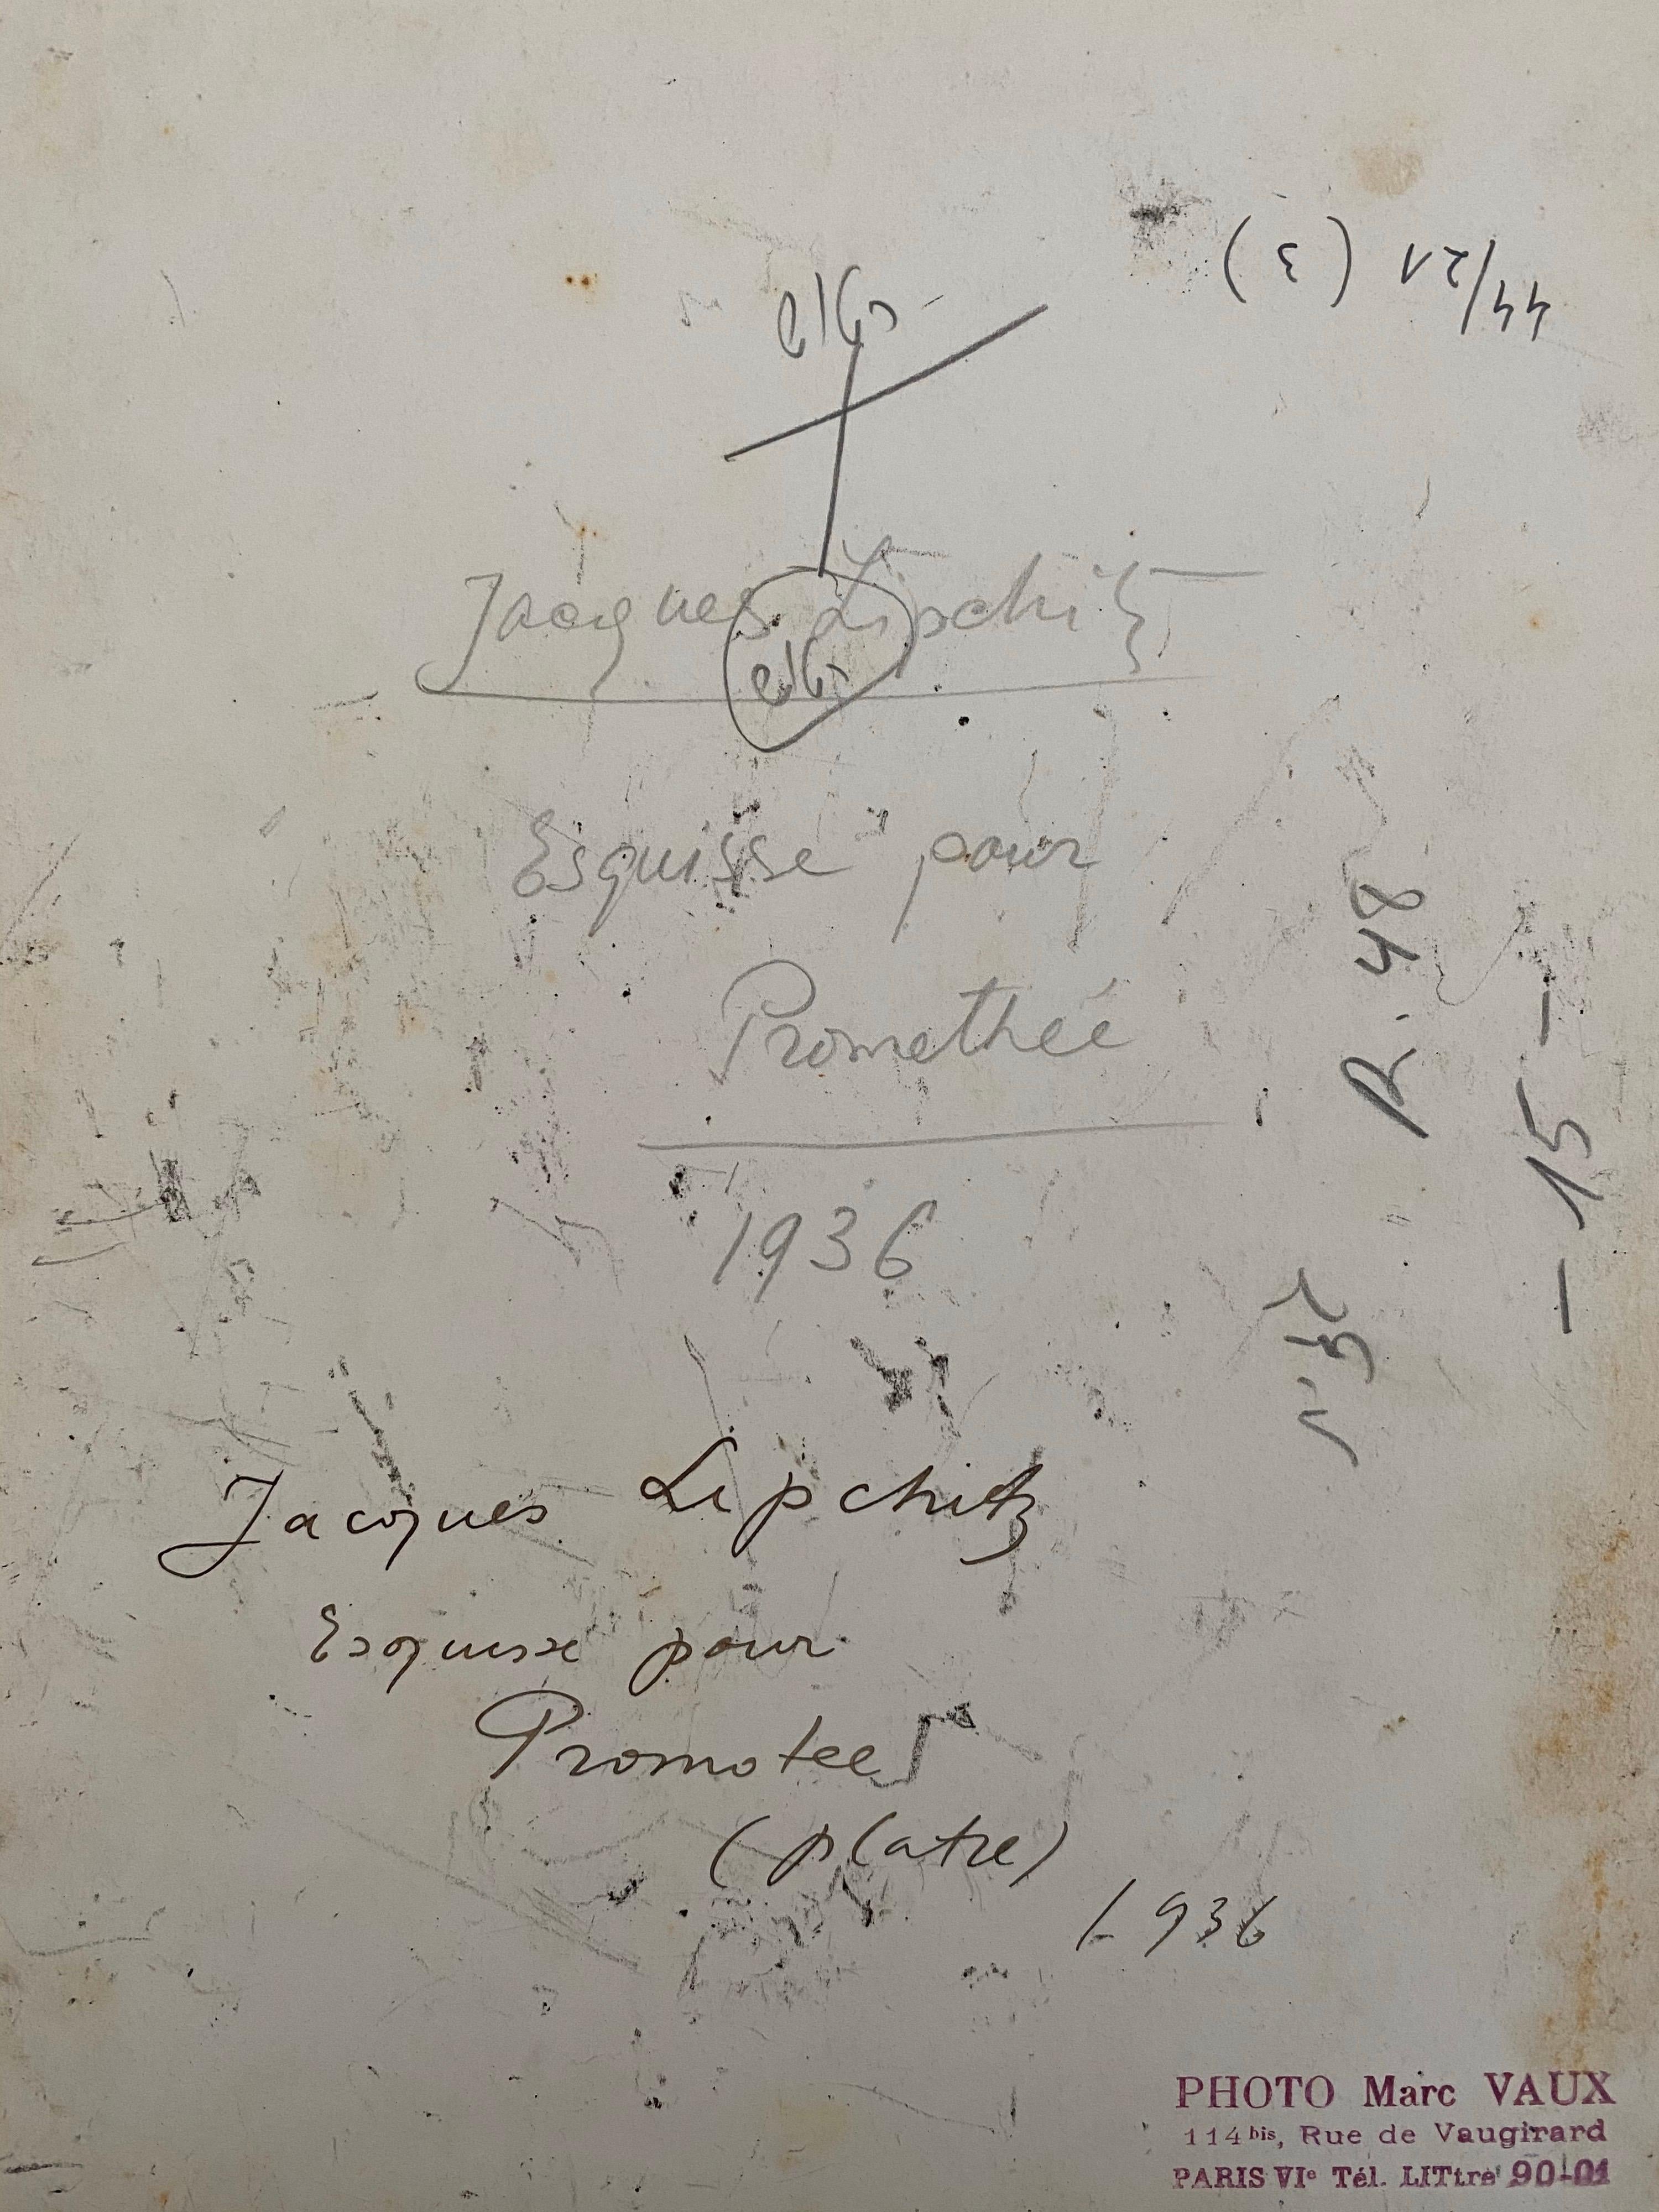 44/21 (3)
Jacques Lipchitz
Esquisse pour
Promethée
1936
R. 48
– 15 –
Jacques Lipchitz
Esquisse pour
Promotee
(platre)
1936
PHOTO Marc VAUX
114bis, Rue de Vaugirard
PARIS VIe Tél. LITtre 90-01